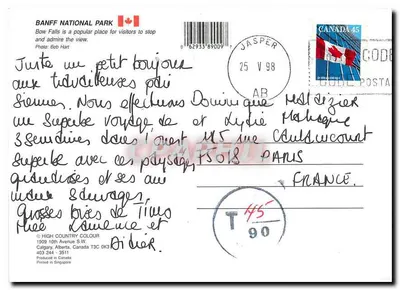 BANFF NATIONAL PARK
Bow Falls is a popular place for visitors to stop
and admire the view.
Photo: Bob Hart
62933 89009
CANADA 45
JASPER
25 V 98
AB
CODE
CODE POSTAL
Juste un petit bonjour
aux travailleuses pari
siennes. Nous effectuons
un superbe voyage de
3 semaines dans l'ouest
superbe avec ces paysages
grandioses et ses animaux
sauvages.
Grosses bises de Tinos
Laurence et
Didier.
Dominique
et Lydie
115 rue Caulaincourt
75018 PARIS
FRANCE.
T 45/90
© HIGH COUNTRY COLOUR
1909 10th Avenue S.W.
Calgary, Alberta, Canada T3C 0K3
403 244 - 3511
Produced in Canada
Printed in Singapore